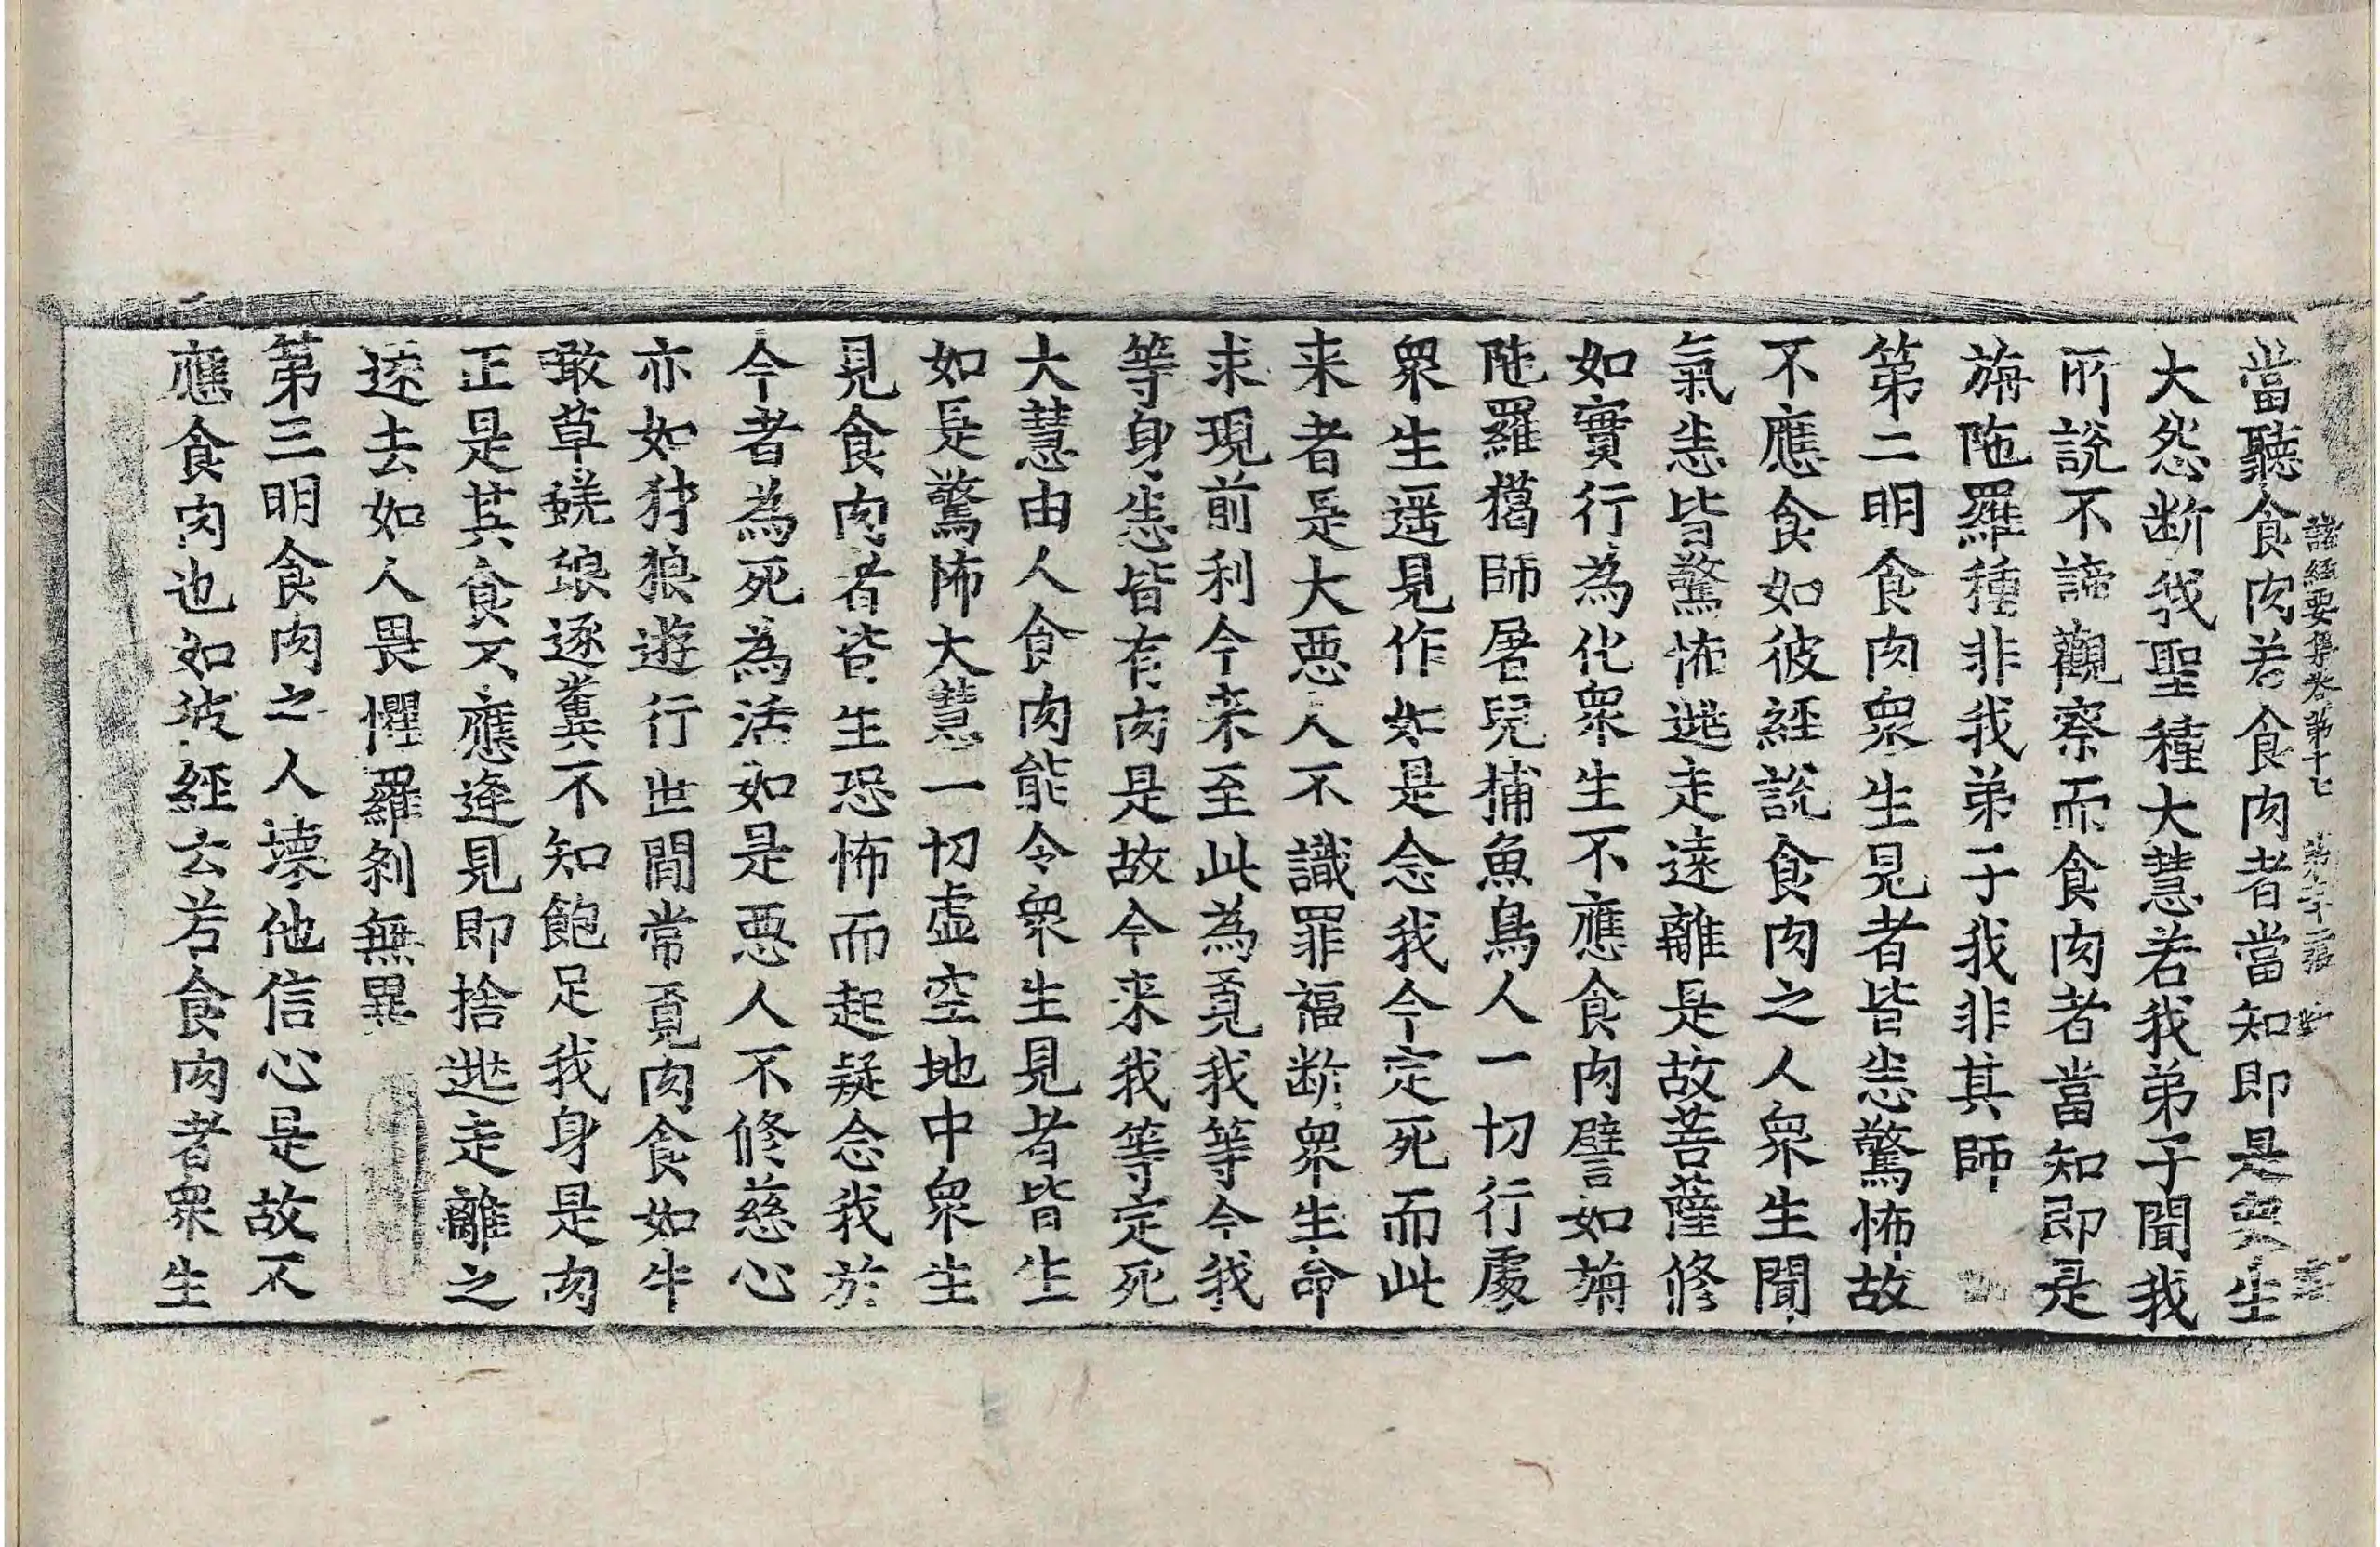 當聽食肉若食肉者當知即是衆生
諸經要集卷第十七 第二十二張
大怨断我聖種大慧若我弟子聞我
所說不諦觀察而食肉者當知即是
旃陁羅種非我弟子我非其師
第二明食肉衆生見者皆悉驚怖故
不應食如彼經說食肉之人衆生聞
氣悉皆驚怖逃走遠離是故菩薩修
如實行為化衆生不應食肉譬如旃
陁羅獦師屠兒捕魚鳥人一切行處
衆生遥見作如是念我今定死而此
来者是大惡人不識罪福断衆生命
求現前利今来至此為覔我等今我
等身悉皆有肉是故今来我等定死
大慧由人食肉能令衆生見者皆生
如是驚怖大慧一切虛空地中衆生
見食肉者皆生恐怖而起疑念我於
今者為死為活如是惡人不修慈心
亦如犲狼遊行世間常覔肉食如牛
噉草蜣蜋逐糞不知飽足我身是肉
正是其食不應逢見即捨逃走離之
遠去如人畏懼羅刹無異
第三明食肉之人壞他信心是故不
應食肉也如彼經云若食肉者衆生